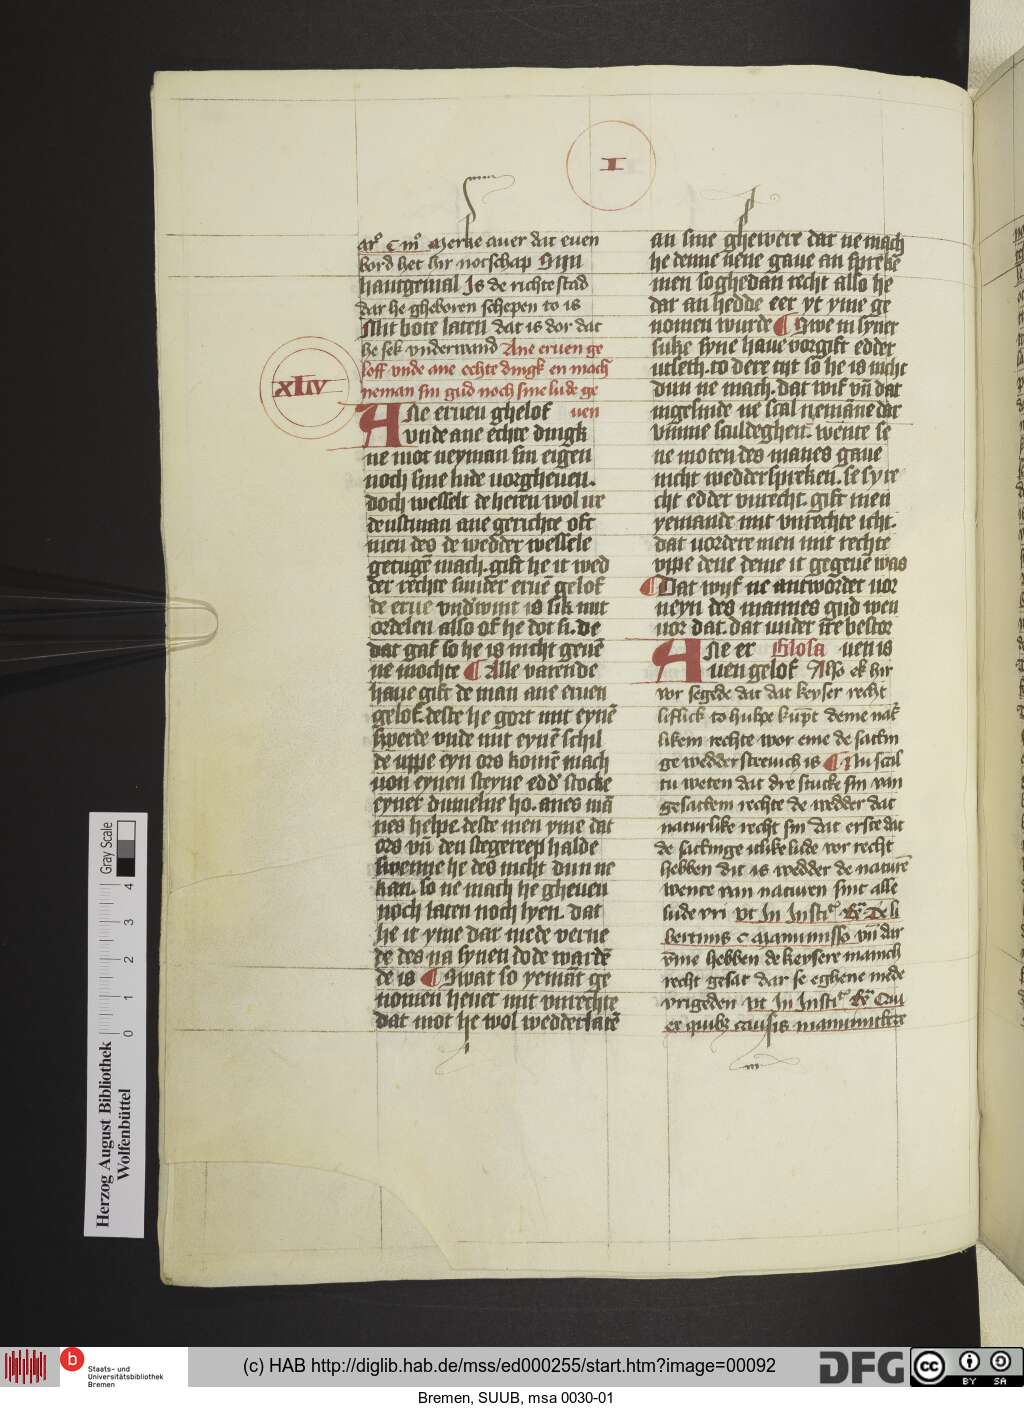 I
arͦ c mͦ Merke auer dat euen
bord het hir notschap Syn
hantgemal Is de richte stad
dar he gheboren schepen to is
Mit bote laten dat is dor dat
he sek vnderwand Ane eruen ge
loff vnde ane echte dingk en mach
neman sin gud noch sine lude ge
uen
XLIV
Ane eruen ghelof
vnde ane echte dingk
ne mot neyman sin eigen
noch sine lude uorgheuen.
doch wesselt de heren wol ire
denstman ane gerichte oft
men des de wedder wessele
getugē mach. gift he it wed
der rechte sunder eruē gelof
de erue vndwint is sik mit
ordelen also of he dot si. de
dat gaf so he is nicht geuē
ne mochte ¶ Alle varende
haue gift de man ane eruen
gelof. deste he gort mit eynē
swerde vnde mit eynē schil
de uppe eyn ors komē mach
uon eynen steyne edd' stocke
eyner dumelne ho. anes mā
nes helpe. deste men yme dat
ors vn̄ den stegereep halde
swenne he des nicht dun ne
kan. so ne mach he gheuen
noch laten noch lyen. dat
he it yme dar mede verne
de des na synen dode wardē
de is ¶ Swat so yemāt ge
nomen heuet mit vnrechte
dat mot he wol wedderlatē
an sine ghewere dat ne mach
he denne nene gaue an sprekē
men soghedan recht also he
dar an hedde eer yt yme ge
nomen wurde ¶ Swe in syner
suke syne haue vorgift edder
utlech. to dere tijt so he is nicht
dun ne mach. dat wif vn̄ dat
ingesinde ne scal nemāne dar
vm̄me sculdeghen. wente se
ne moten des manes gaue
nicht wedderspreken. se sy re
cht edder vnrecht. gift men
yemande mit vnrechte icht.
dat uordere men mit rechte
vppe dene deme it gegeuē was
¶ Dat wijf ne antwordet uor
neyn des mannes gud wen
uor dat. dat under ire bestor
Glosa uen is
Ane er
uen gelof Also ek hir
vor segede dat dat keyser recht
liflick to hulpe kūpt deme nat'
likem rechte wor eme de sackin
ge wedder streuich is ¶ Nu scal
tu weten dat dre stucke sin van
gesattem rechte de wedder dat
naturlike recht sin dat erste dat
de sackinge itlike lude vor recht
hebben dit is wedder de naturē
wente van naturen sint alle
lude vri vt In Insti. Rͬ De li
bertinis c Manumisso vn̄ dar
vm̄e hebben de keysere mānich
recht gesat dar se eghene mede
vrigeden vt In Insti. Rͬ Qui
ex quib; causis manumittere
Gray Scale
0 1 2 3 4
Herzog August Bibliothek
Wolfenbüttel
Staats- und
Universitätsbibliothek
Bremen
(c) HAB http://diglib.hab.de/mss/ed000255/start.htm?image=00092
DFG
cc BY SA
Bremen, SUUB, msa 0030-01